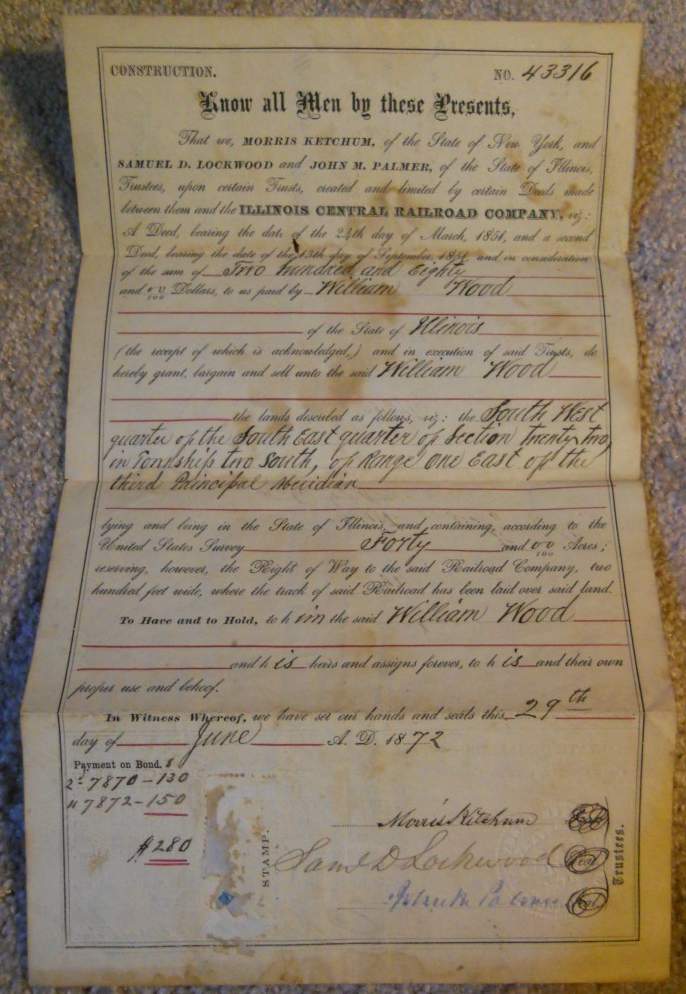 CONSTRUCTION. NO. 43316
Know all Men by these Presents,
That we, MORRIS KETCHUM, of the State of New York, and
SAMUEL D. LOCKWOOD and JOHN M. PALMER, of the State of Illinois,
Trustees, upon certain Trusts, created and limited by certain Deeds made
between them and the ILLINOIS CENTRAL RAILROAD COMPANY, viz:
A Deed, bearing the date of the 24th day of March, 1851, and a second
Deed, bearing the date of the 13th day of September, 1851, and in consideration
of the sum of Two hundred and Eighty
and 00/100 Dollars, to us paid by William Wood
of the State of Illinois
(the receipt of which is acknowledged,) and in execution of said Trusts, do
hereby grant, bargain and sell unto the said William Wood
the lands described as follows, viz: the South West
quarter of the South East quarter of Section twenty two,
in Township two South, of Range One East of the
third Principal Meridian
lying and being in the State of Illinois, and containing, according to the
United States Survey Forty and 00/100 Acres;
reserving, however, the Right of Way to the said Railroad Company, two
hundred feet wide, where the track of said Railroad has been laid over said land.
To Have and to Hold, to him the said William Wood
and his heirs and assigns forever, to his and their own
proper use and behoof.
In Witness Whereof, we have set our hands and seals this 29th
day of June A. D. 1872
Payment on Bond.
7870 - 130
7872 - 150
$280
STAMP.
Morris Ketchum
Saml D Lockwood Seal
John M Palmer Seal
Trustees.